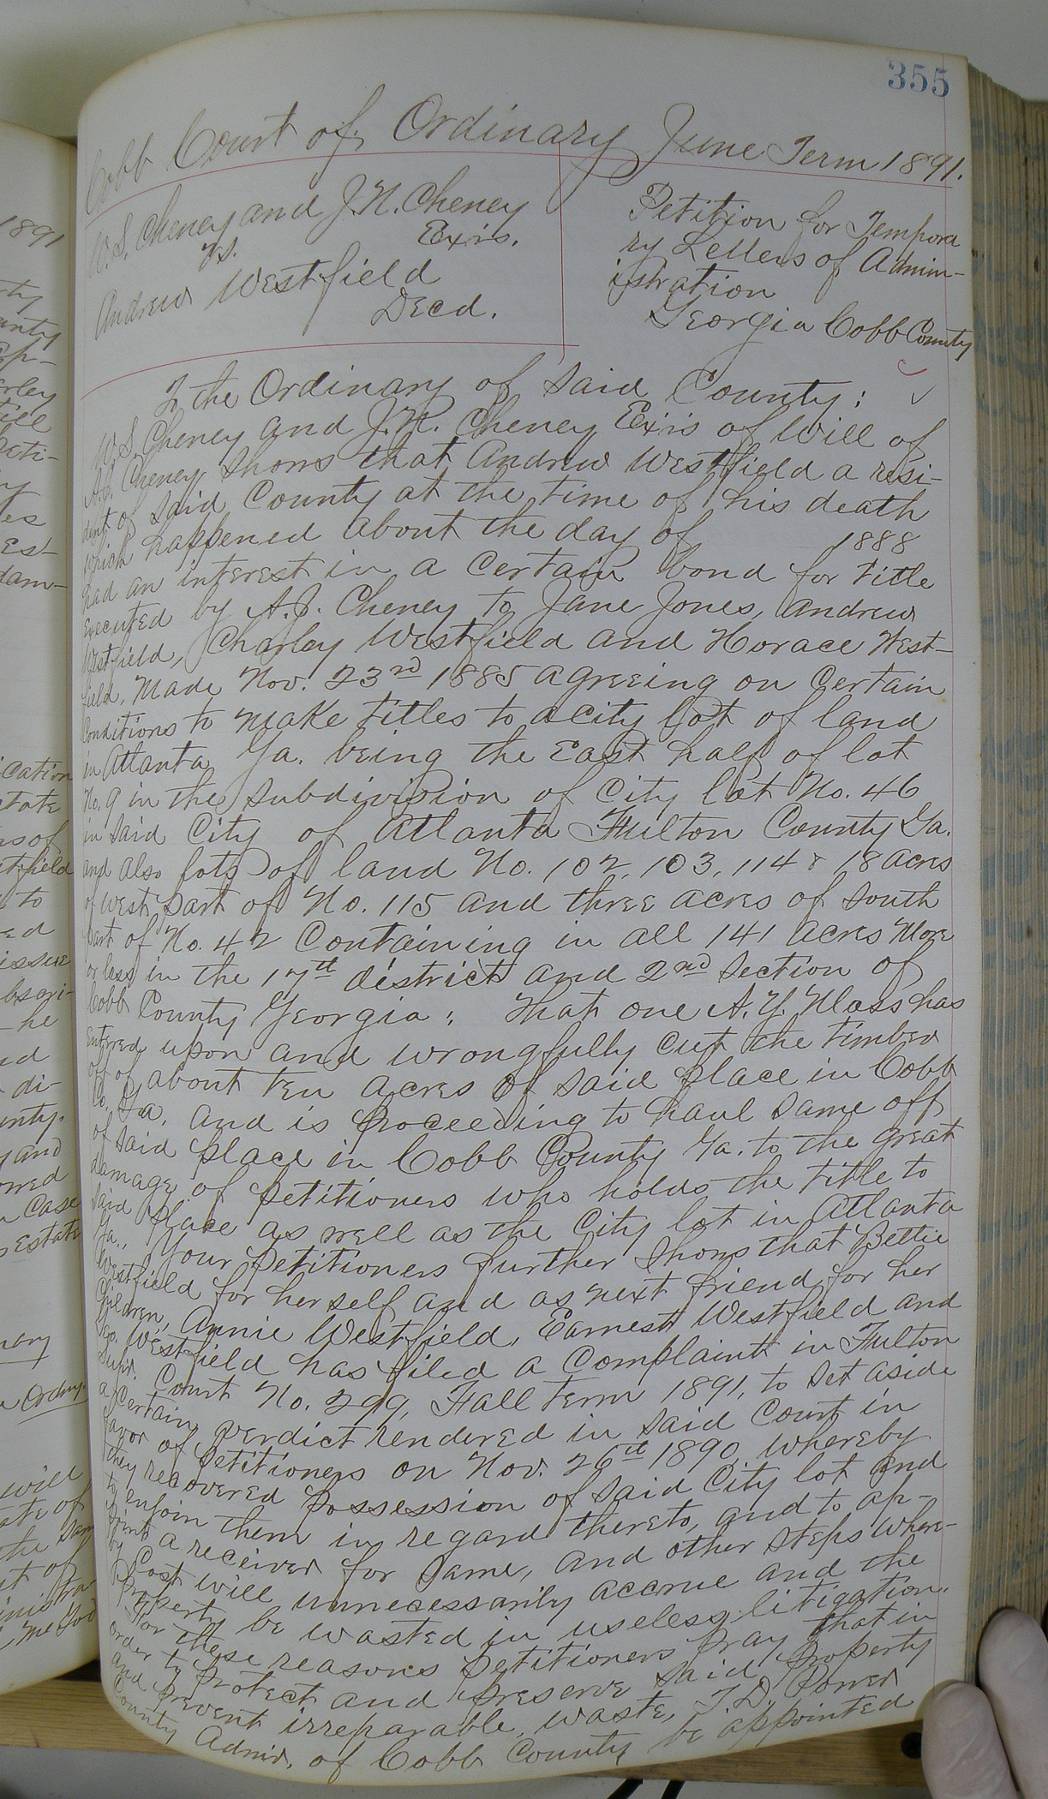 355
Cobb Court of Ordinary June Term 1891.
W.S. Cheney and J.N. Cheney
Exirs.
vs.
Andrew Westfield
Decd.
Petition for Tempora
ry Letters of Admin-
istration
Georgia Cobb County
To the Ordinary of Said County:
W.S. Cheney and J.N. Cheney Exirs of Will of
A.J. Cheney Shows that Andrew Westfield a resi-
dent of Said County at the time of his death
which happened about the day of 1888
had an interest in a Certain bond for title
Executed by A.J. Cheney to Jane Jones, Andrew
Westfield, Charley Westfield and Horace West-
field, Made Nov. 23rd 1885 agreeing on Certain
Conditions to make titles to a city lot of land
in Atlanta Ga. being the East half of lot
No. 9 in the Subdivision of City lot No. 46
in Said City of Atlanta Fulton County Ga.
and also lots of land No. 102, 103, 114 & 18 acres
of west part of No. 115 and three acres of South
part of No. 42 Containing in all 141 acres More
or less in the 17th district and 2nd Section of
Cobb County Georgia; That one A.Y. has
Entered upon and wrongfully cut the timber
off of about ten acres of said place in Cobb
Co, Ga. and is proceeding to haul same off
of said place in Cobb County Ga. to the great
damage of Petitioners who holds the title to
Said place as well as the City lot in Atlanta
Ga., Your Petitioners further Shows that Bettie
Westfield for herself and as next friend for her
Children, Annie Westfield, Earnest Westfield and
Westfield has filed a Complaint in Fulton
Supr. Court No. 299, Fall term 1891, to set aside
a Certain verdict rendered in said Court in
favor of Petitioners on Nov. 26th 1890 whereby
they recovered possession of said City lot and
to enjoin them in regard thereto, and to ap-
point a receiver for same, and other steps where-
by Cost will unnecessarily accrue and the
property be wasted in useless litigation.
For these reasons Petitioners pray that in
order to protect and preserve said property
and prevent irreparable waste, T.D. Power
County Admr. of Cobb County be appointed